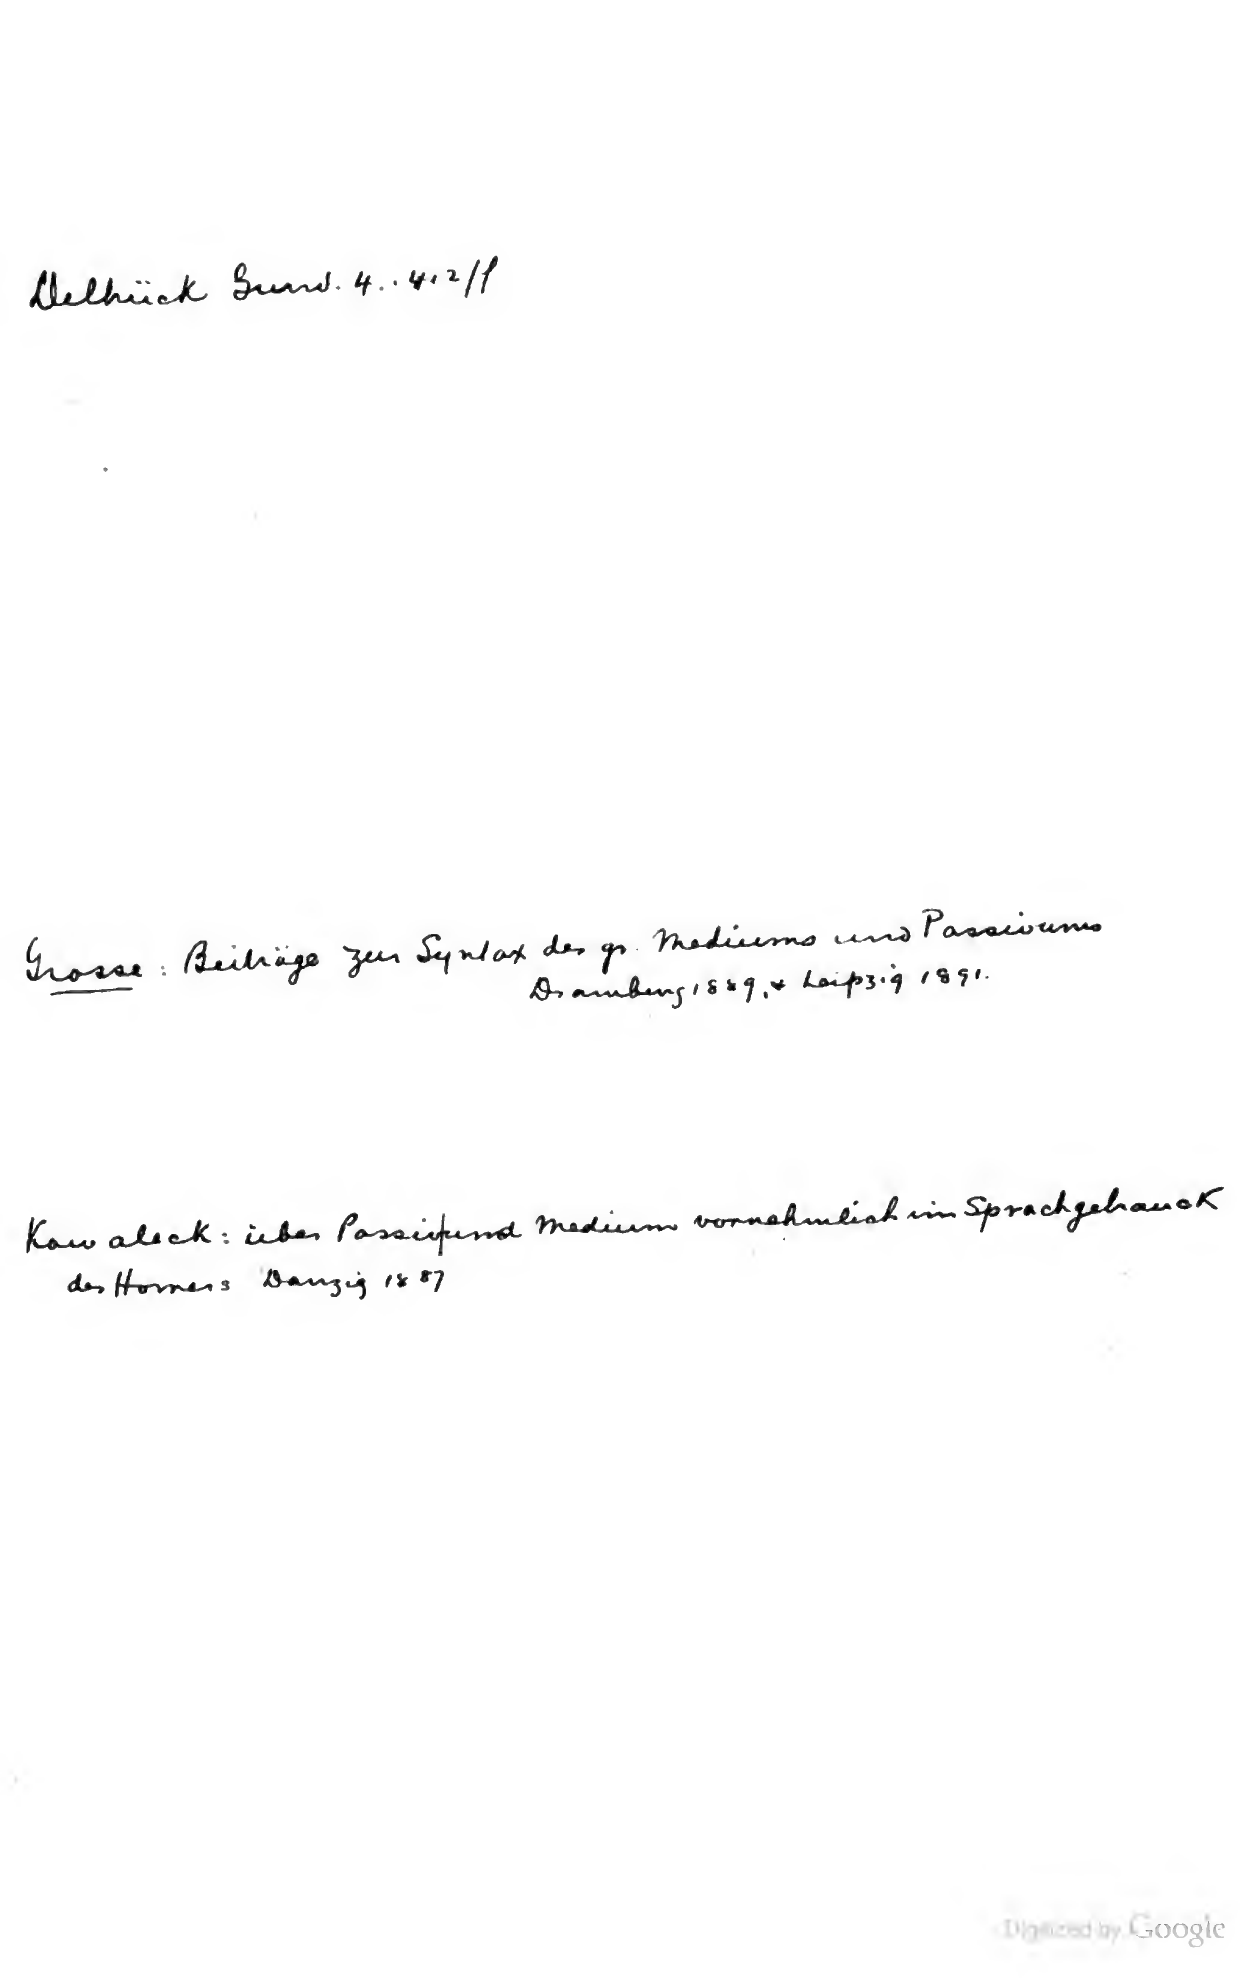 Delbrück Grund. 4. . 412 ff
Grosse : Beiträge zur Syntax des gr. Mediums und Passivums
Dramburg 1889, & Leipzig 1891.
Kowaleck : über Passiv und Medium vornehmlich im Sprachgebrauck
des Homers Danzig 1887
Digitized by Google